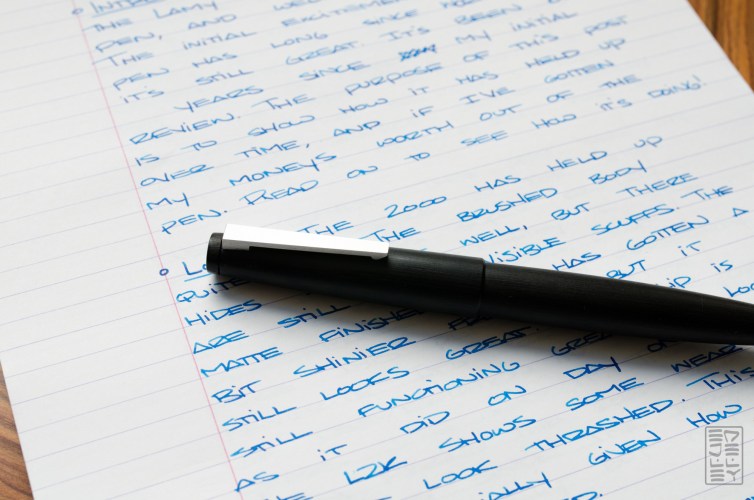 THE LAMY AND
PEN, AND WELL
THE INITIAL EXCITEMENT
PEN HAS LONG SINCE
IT'S STILL GREAT. IT'S BEEN
YEARS SINCE MY INITIAL
REVIEW. THE PURPOSE OF THIS POST
IS TO SHOW HOW IT HAS HELD UP
OVER TIME, AND IF I'VE GOTTEN
MY MONEYS WORTH OUT OF THE
PEN. READ ON TO SEE HOW IT'S DOING!
THE 2000 HAS HELD UP
QUITE THE BRUSHED BODY
HIDES WELL, BUT THERE
ARE STILL VISIBLE SCUFFS. THE
MATTE FINISHED HAS GOTTEN A
BIT SHINIER BUT IT
STILL LOOKS GREAT. IS
STILL FUNCTIONING
AS IT DID ON DAY
L2K SHOWS SOME WEAR
LOOK THRASHED. THIS
GIVEN HOW